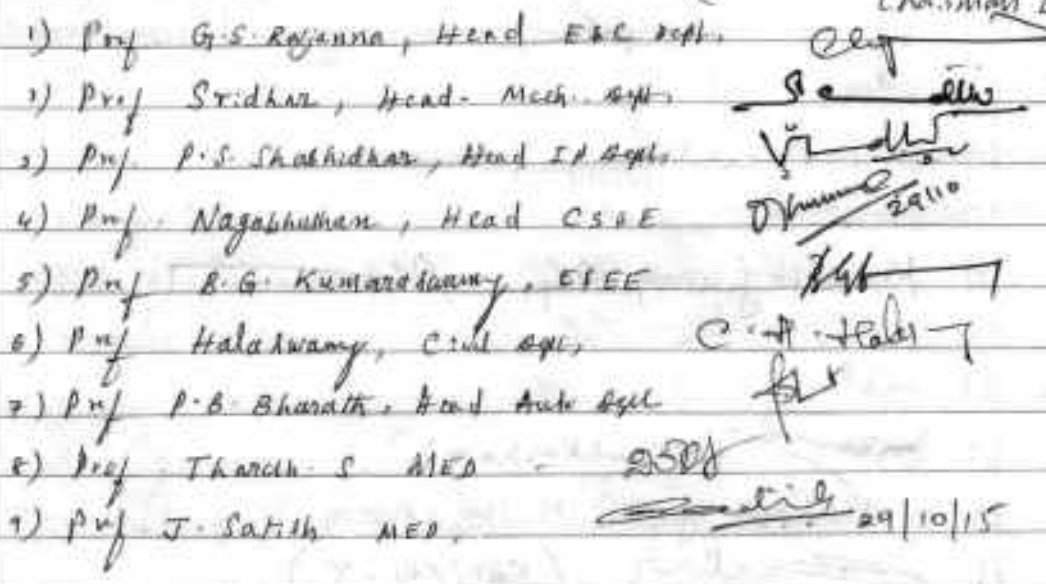 Chairman
1) Prof G.S. Rajanna, Head E&C Dept,
2) Prof Sridhar, Head- Mech. Dept,
3) Prof. P.S. Shashidhar, Head IP Dept,
4) Prof. Nagabhushan, Head CS&E 29/10
5) Prof B.G. Kumaraswamy, E&EE
6) Prof Halaswamy, Civil Dept, C.H. Hala
7) Prof P.B. Bharath, Head Auto Dept
8) Prof Tharesh. S MED
9) Prof J. Satish MED. 29/10/15